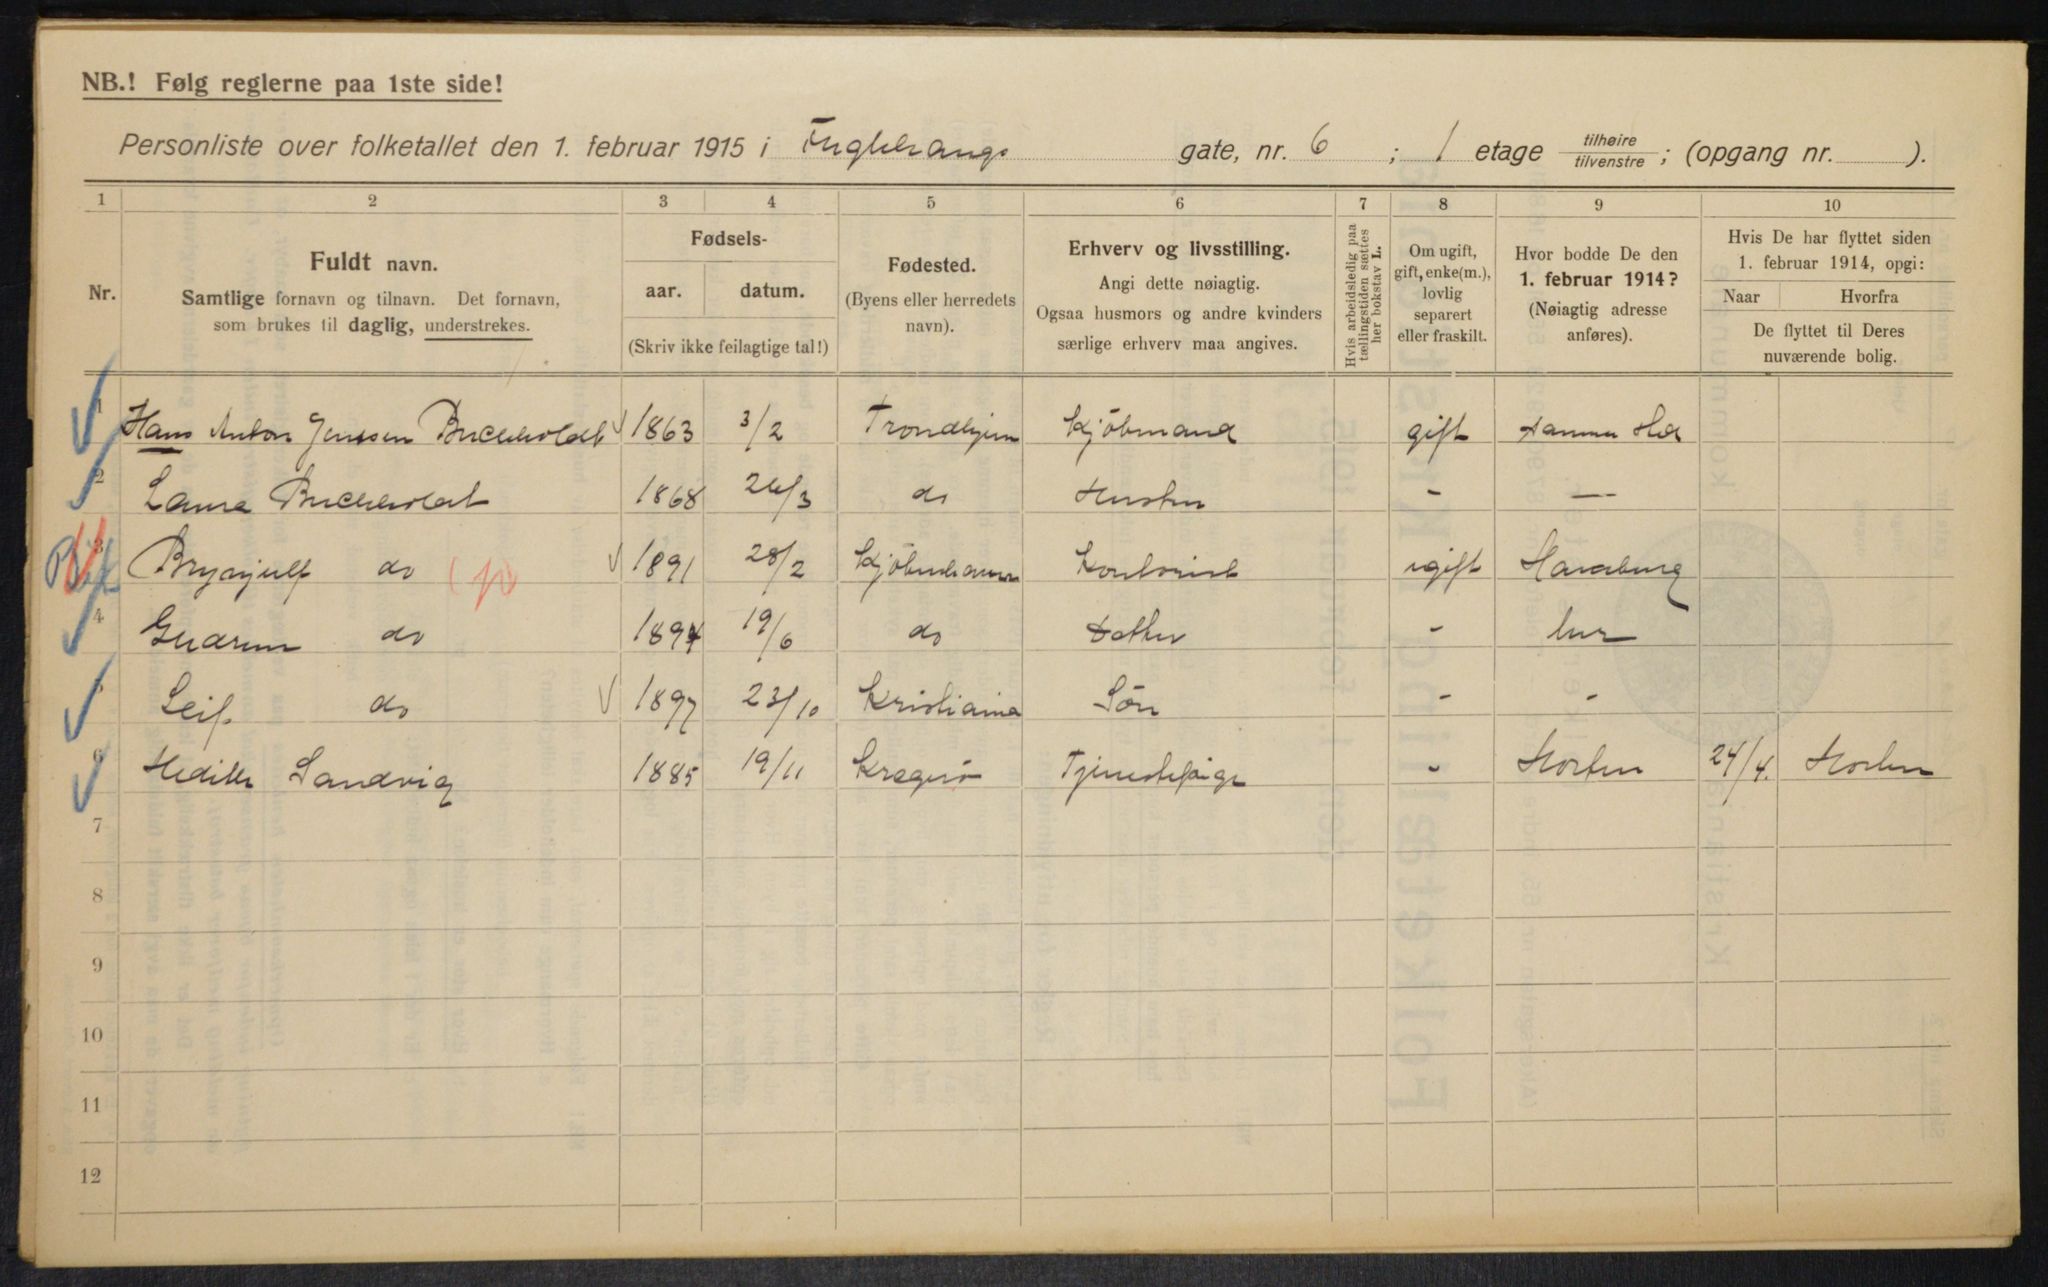 NB.! Følg reglerne paa 1ste side!
Personliste over folketallet den 1. februar 1915 i Fuglehaugs gate, nr. 6 ; 1 etage tilhøire tilvenstre ; (opgang nr. ).
1 2 3 4 5 6 7 8 9 10
Nr.
Fuldt navn.
Samtlige fornavn og tilnavn. Det fornavn,
som brukes til daglig, understrekes.
Fødsels-
aar. datum.
(Skriv ikke feilagtige tal!)
Fødested.
(Byens eller herredets
navn).
Erhverv og livsstilling.
Angi dette nøiagtig.
Ogsaa husmors og andre kvinders
særlige erhverv maa angives.
Hvis arbeidsledig paa
tællingstiden sættes
her bokstav L.
Om ugift,
gift, enke(m.),
lovlig
separert
eller fraskilt.
Hvor bodde De den
1. februar 1914?
(Nøiagtig adresse
anføres).
Hvis De har flyttet siden
1. februar 1914, opgi:
Naar Hvorfra
De flyttet til Deres
nuværende bolig.
1 Hans Anton Jenssen Buchholdt 1863 3/2 Trondhjem Kjöbmand gift samme Sted
2 Laura Buchholdt 1868 26/3 do Hustru - —
3 Brynjulf do 1891 28/2 Kjöbenhavn Kontorist ugift Hamburg
4 Gudrun do 1894 19/6 do Datter - her
5 Leif do 1897 23/10 Kristiania Sön - -
6 Hedda Sandvig 1885 19/11 Kragerö Tjenestepige - Horten 24/4. Horten
7
8
9
10
11
12